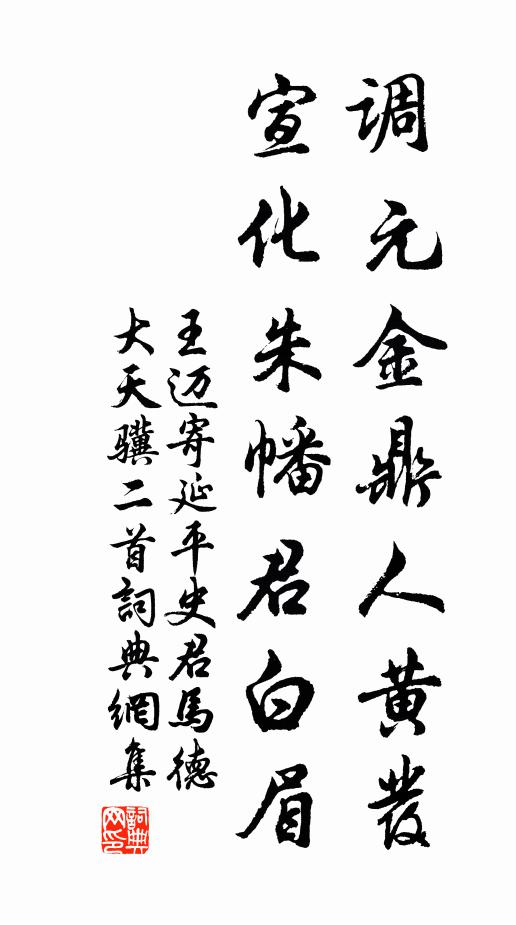 调元金鼎人黄發
宣化朱幡君白眉
王迈寄延平史君馬德
大天骥二首詞典網集
詞典网印